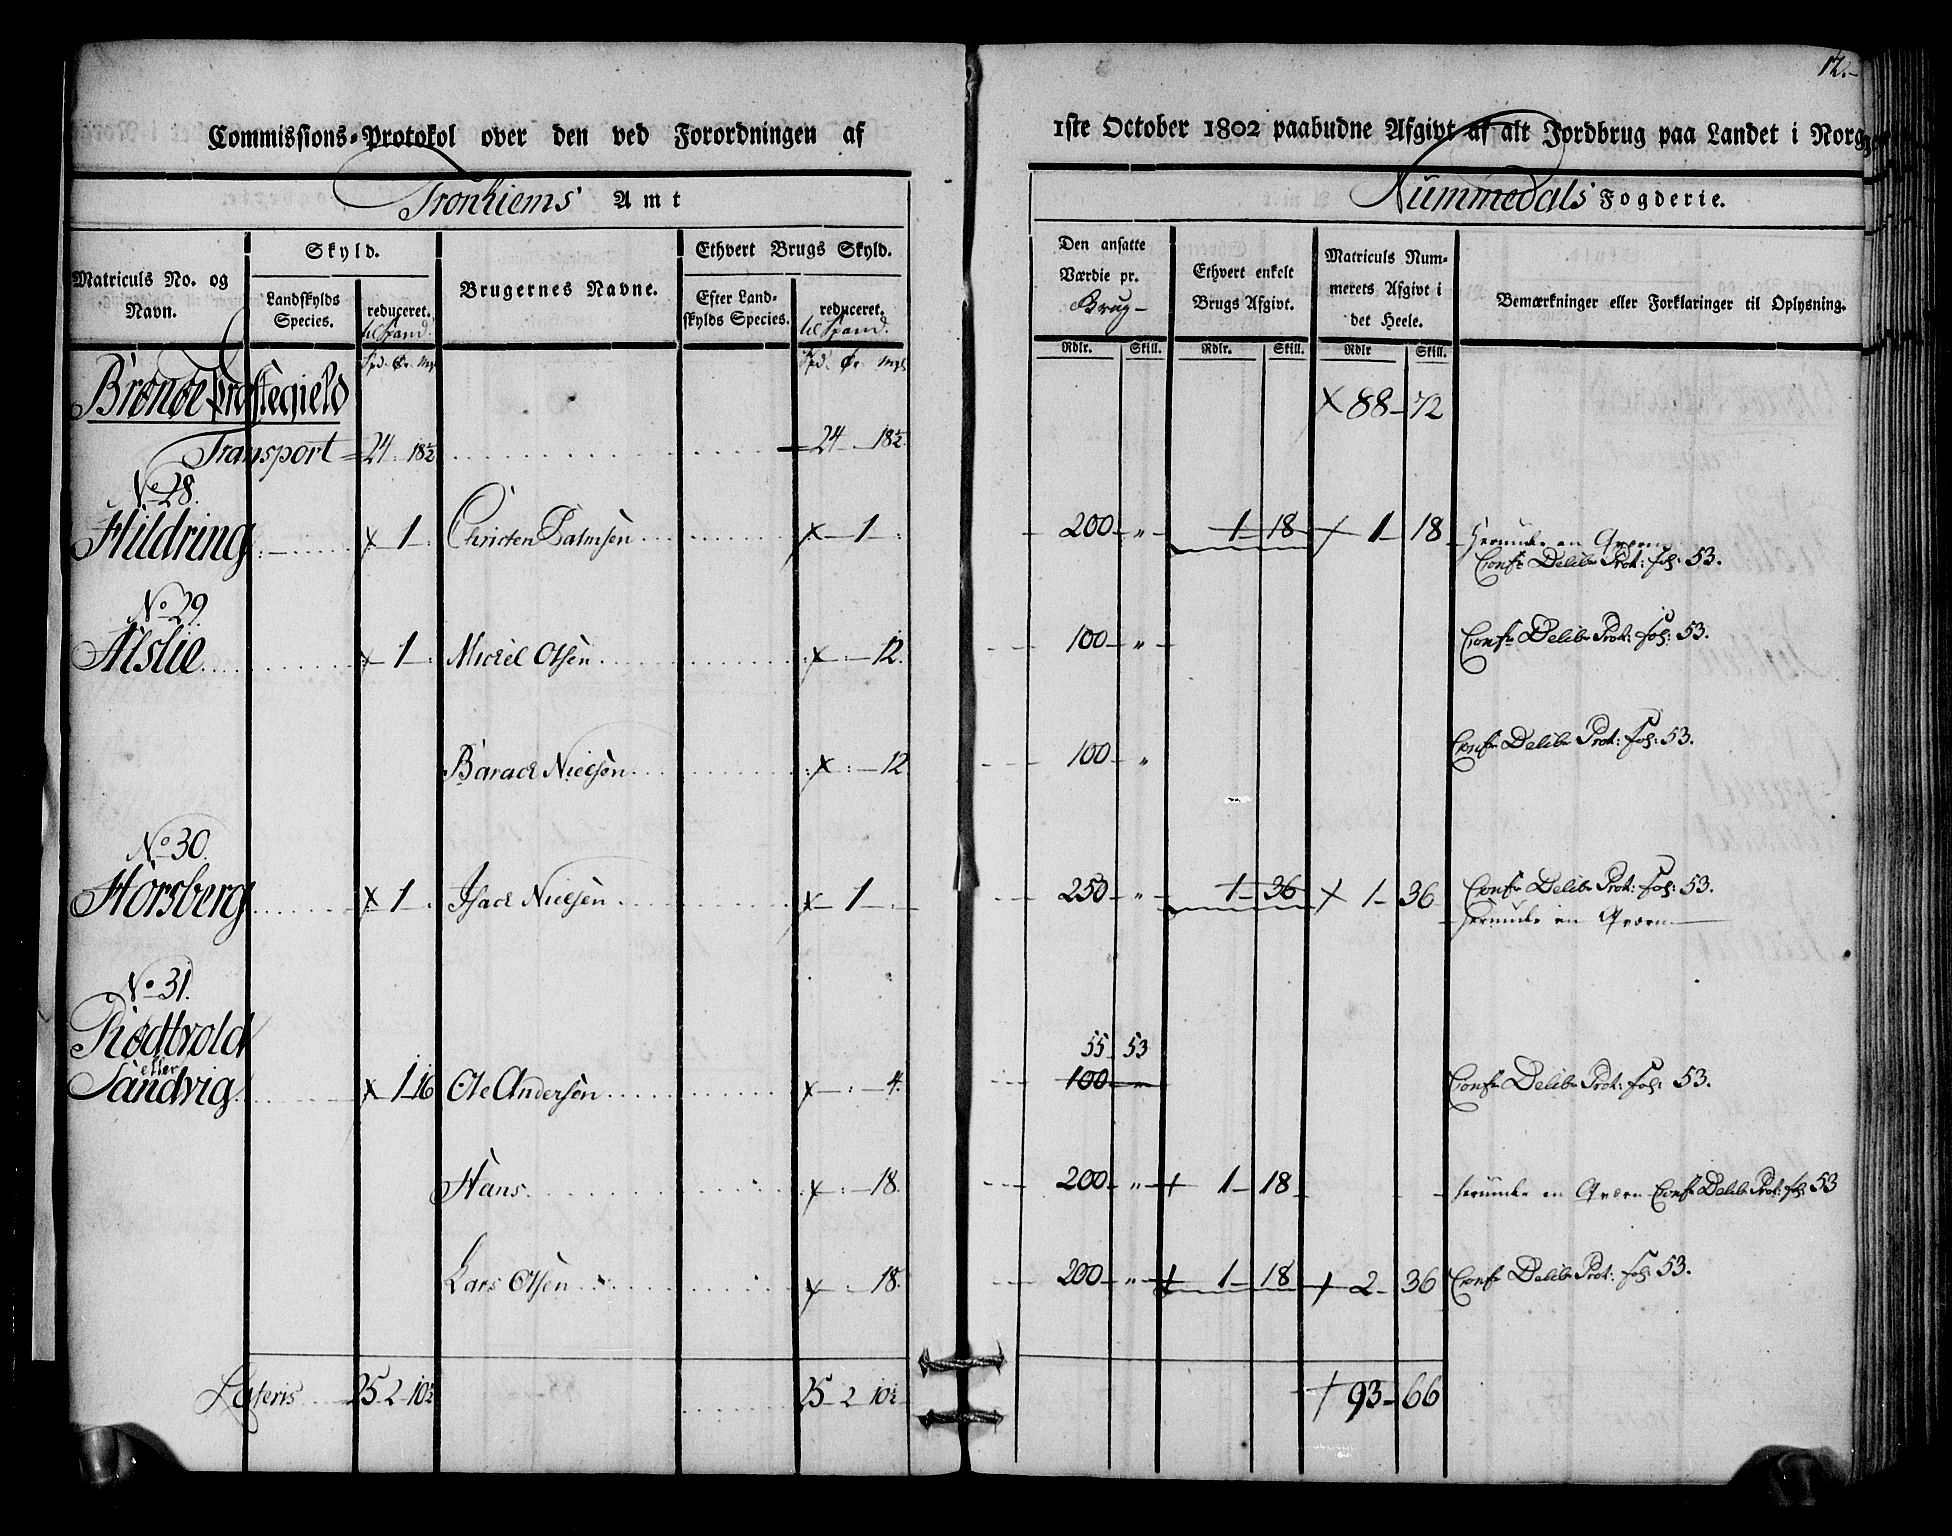 12.-
Commissions-Protokol over den ved Forordningen af 1ste October 1802 paabudne Afgivt af alt Jordbrug paa Landet i Norge
Tronhiems Amt
Nummedals Fogderie.
Matriculs No. og Navn.
Skyld.
Landskylds Species.
reduceret. til Spand.
Brugernes Navne.
Ethvert Brugs Skyld.
Efter Landskylds Species.
reduceret. til Spand.
Den ansatte Værdie pr. Brug-
Ethvert enkelt Brugs Afgivt.
Matriculs Nummerets Afgivt i det Heele.
Bemærkninger eller Forklaringer til Oplysning.
Rdlr. Skill. Rdlr. Skill. Rdlr Skill.
Brønøe Præstegield
× 88-72
Transport 24. 18½ 24 18½
No 28.
Hildring × 1 Christen Palmsen × 1 200 „ 1 18 × 1 18 Herunder en Qværn
Confr Delib: Prot: fol: 53.
No 29.
Alslie × 1 Mickel Olsen × 12. 100 „ Confr Delib: Prot: fol: 53.
Barack Nielsen × 12 100 „ Confr Delib: Prot: fol: 53.
No 30.
Horsberg × 1 Isack Nielsen × 1 250 „ 1 36 × 1 36 Confr Delib: Prot: fol: 53.
Herunder en Qværn
No 31.
Riodtvold
eller
Sandvig × 1 16 Ole Andersen × 4. 55 53
100 „ Confr Delib: Prot: fol: 53.
Hans × 18. 200 „ + 1 18 herunder en Qværn Confr Delib: Prot: fol: 53
Lars Olsen × 18. 200 „ + 1 18 + 2 36 Confr Delib: Prot: fol: 53.
Lateris 25 2 10½ 25 2 10½ + 93-66